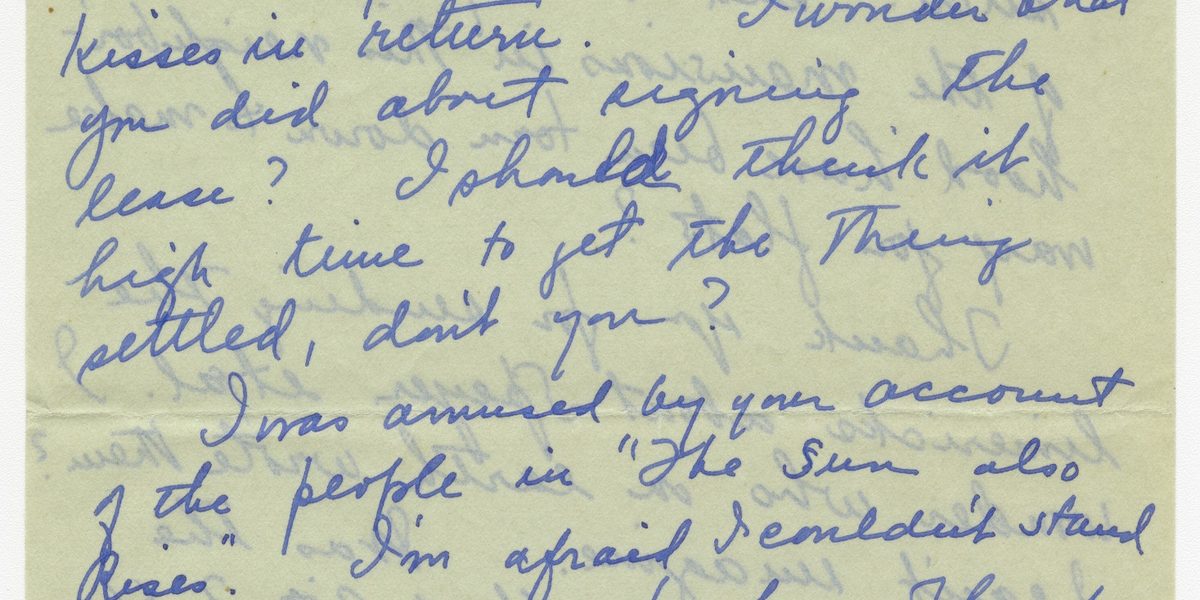 kisses in return. I wonder what
you did about signing the
lease? I should think it
high time to get the Thing
settled, don't you?
I was amused by your account
of the people in "The Sun also
Rises." I'm afraid I couldn't stand